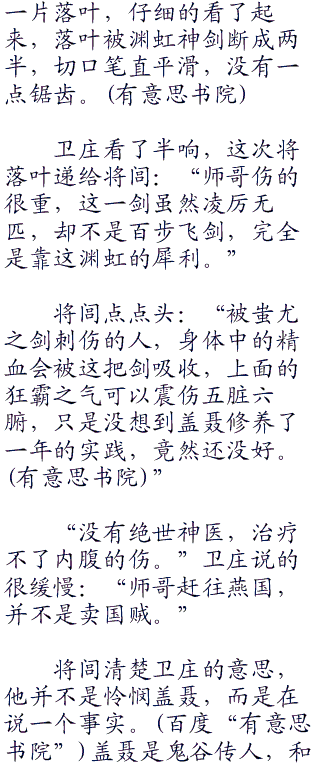 一片落叶，仔细的看了起
来，落叶被渊虹神剑断成两
半，切口笔直平滑，没有一
点锯齿。(有意思书院)
卫庄看了半响，这次将
落叶递给将闾：“师哥伤的
很重，这一剑虽然凌厉无
匹，却不是百步飞剑，完全
是靠这渊虹的犀利。”
将闾点点头：“被蚩尤
之剑刺伤的人，身体中的精
血会被这把剑吸收，上面的
狂霸之气可以震伤五脏六
腑，只是没想到盖聂修养了
一年的实践，竟然还没好。
(有意思书院)”
“没有绝世神医，治疗
不了内腹的伤。”卫庄说的
很缓慢：“师哥赶往燕国，
并不是卖国贼。”
将闾清楚卫庄的意思，
他并不是怜悯盖聂，而是在
说一个事实。(百度“有意思
书院”)盖聂是鬼谷传人，和